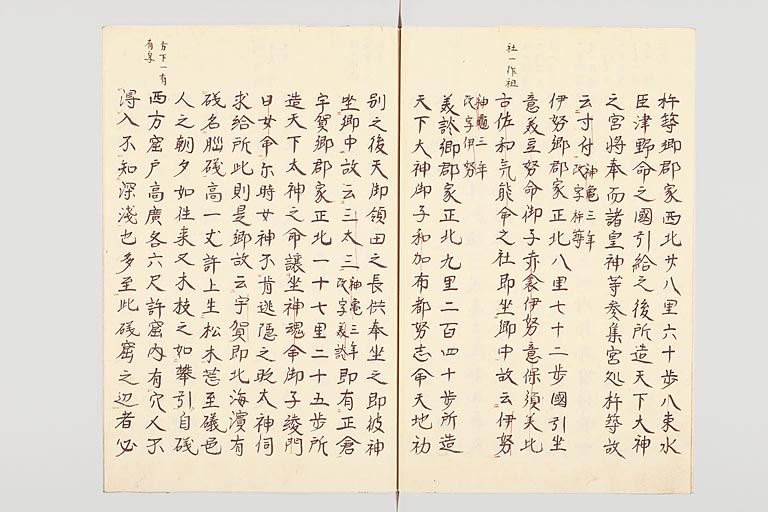 社一作祖
杵築郷郡家西北廿八里六十歩八束水
臣津野命之國引給之後所造天下大神
之宮将奉而諸皇神等参集宮処杵築故
云寸付神亀三年改字杵築
伊努郷郡家正北八里七十二歩國引坐
意美豆努命御子赤衾伊努意保須美比
古佐和気能命之社即坐郷中故云伊努
神亀三年改字伊努
美談郷郡家正北九里二百四十歩所造
天下大神御子和加布都努志命天地初
方下一有有字
別之後天御領田之長供奉坐之即彼神
坐郷中故云三太三神亀三年改字美談即有正倉
宇賀郷郡家正北一十七里二十五歩所
造天下大神之命譲坐神魂命御子綾門
日女命尓時女神不肯逃隠之時大神伺
求給所此則是郷故云宇賀即北海濱有
礒名脳礒高一丈許上生松木芸至礒邑
人之朝夕如往来又木枝之如攀引自礒
西方窟戸高廣各六尺許窟内有穴人不
得入不知深浅也夢至此礒窟之辺者必